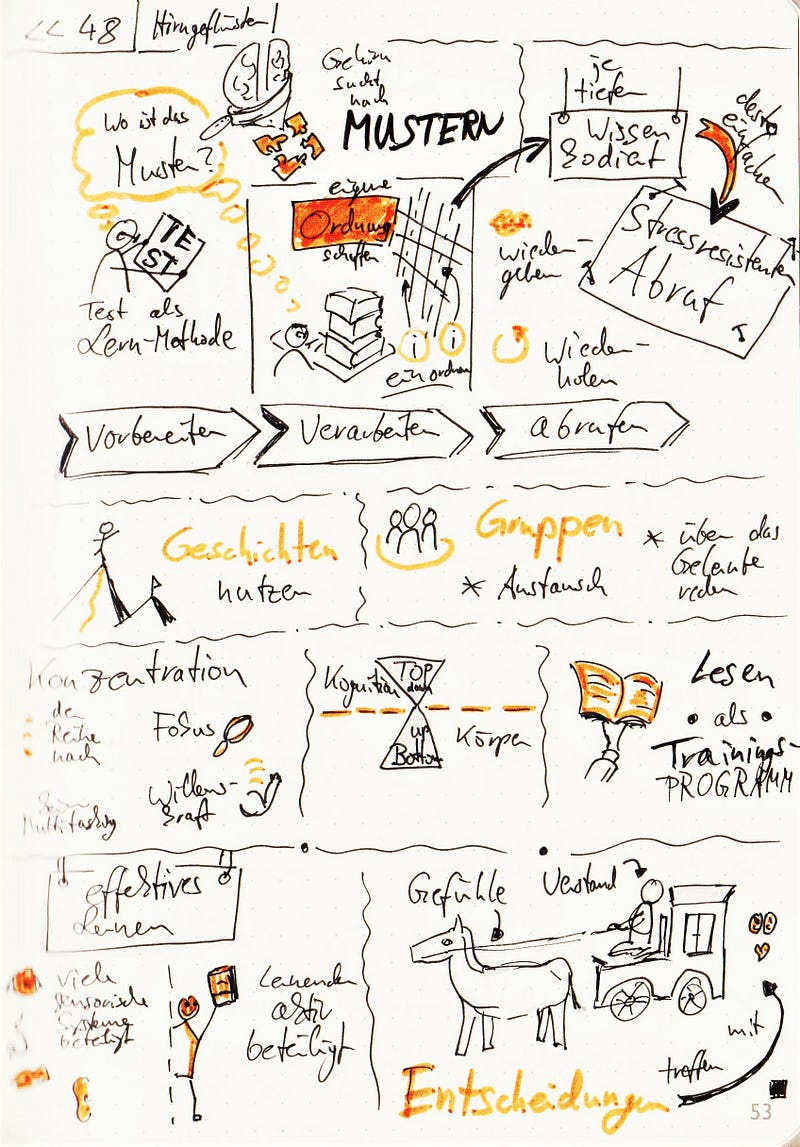 << 48
Hirngeflüster
Gehirn
sucht
nach
MUSTERN
Wo ist das
Muster?
TE
ST
Test als
Lern-Methode
eigene
Ordnung
schaffen
i i
einordnen
je
tiefer
Wissen
kodiert
desto
einfacher
Stressresistenter
Abruf
wieder-
geben
Wieder-
holen
Vorbereiten
Verarbeiten
abrufen
Geschichten
nutzen
Gruppen
* Austausch
* über das
Gelernte
reden
Konzentration
der
Reihe
nach
Fokus
Willens-
kraft
kein
Multitasking
Kognition
TOP
down
up
Bottom
Körper
Lesen
• als •
Trainings-
PROGRAMM
effektives
Lernen
viele
sensorische
Systeme
beteiligt
Lernender
aktiv
beteiligt
Gefühle
Verstand
mit
treffen
Entscheidungen
53